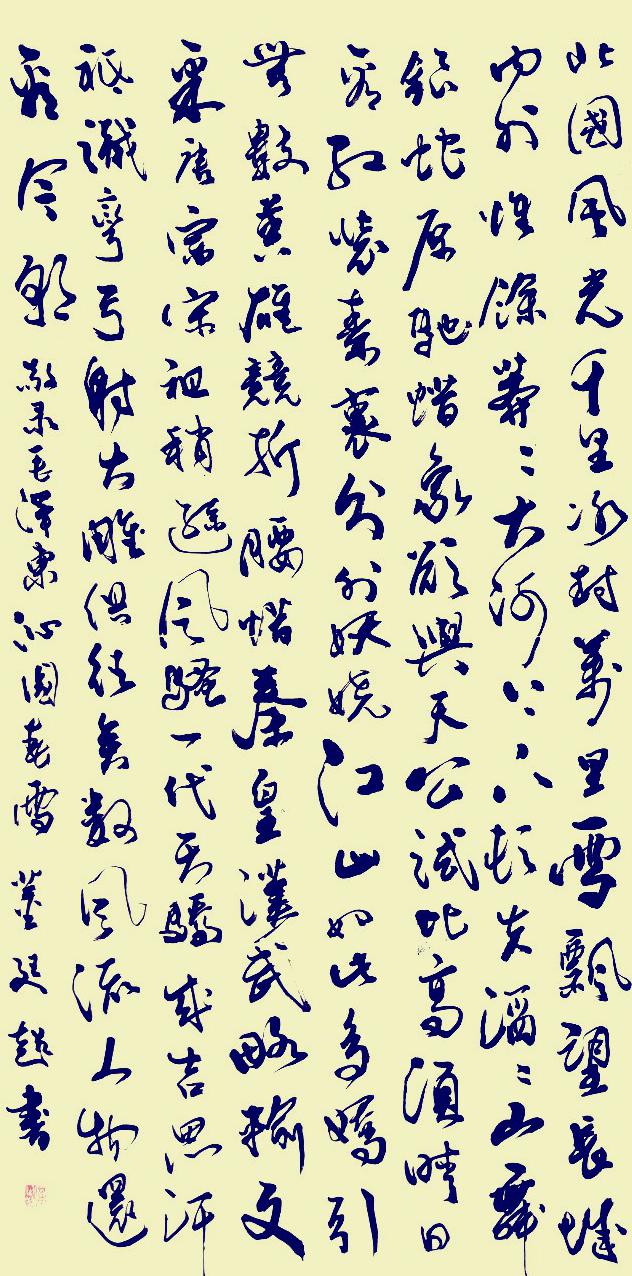 北國風光千里冰封萬里雪飄望長城
內外惟餘莽〻大河上下頓失滔〻山舞
銀蛇原馳蜡象欲與天公試比高須晴日
看紅裝素裹分外妖嬈江山如此多嬌引
無數英雄競折腰惜秦皇漢武略輸文
采唐宗宋祖稍遜風騷一代天驕成吉思汗
祇識彎弓射大雕俱往矣數風流人物還
看今朝 敬录毛澤東沁園春雪 董廷書